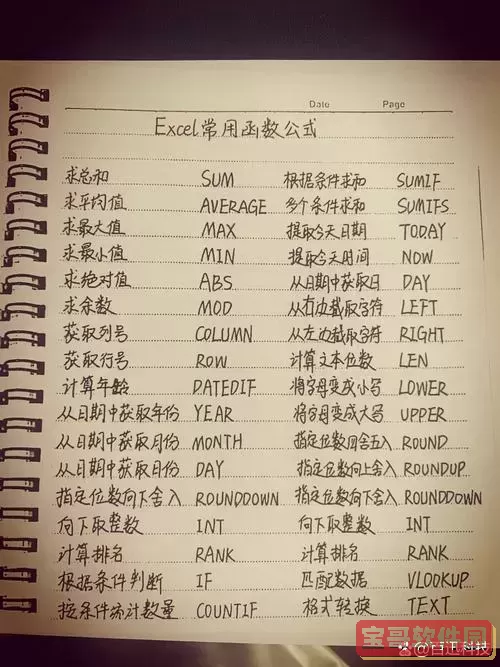 Date Page
Excel常用函数公式
求总和 SUM 根据条件求和 SUMIF
求平均值 AVERAGE 多个条件求和 SUMIFS
求最大值 MAX 提取今天日期 TODAY
求最小值 MIN 提取今天时间 NOW
求绝对值 ABS 从日期中获取日 DAY
求余数 MOD 从右边截取字符 LEFT
获取列号 COLUMN 从左边截取字符 RIGHT
获取行号 ROW 计算文本位数 LEN
计算年龄 DATEDIF 将字母变成小写 LOWER
从日期中获取年份 YEAR 将字母变成大写 UPPER
从日期中获取月份 MONTH 指定位数四舍五入 ROUND
从日期中获取日份 DAY 指定位数向上舍入 ROUNDUP
指定位数向下舍入 ROUNDDOWN 指定位数向下舍入 ROUNDDOWN
向下取整数 INT 向下取整数 INT
计算排名 RANK 计算排名 RANK
根据条件判断 IF 匹配数据 VLOOKUP
按条件统计数量 COUNTIF 格式转换 TEXT
宝哥软件园